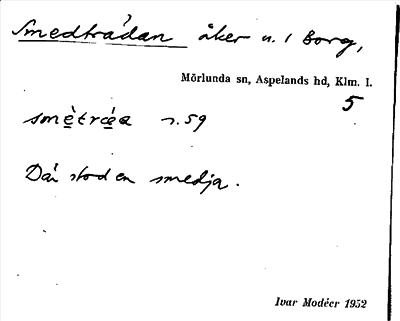 Smedträdan åker n. 1 Borg,
Mörlunda sn, Aspelands hd, Klm. l.
5
smètrǽa r. 59
Där stod en smedja.
Ivar Modéer 1952